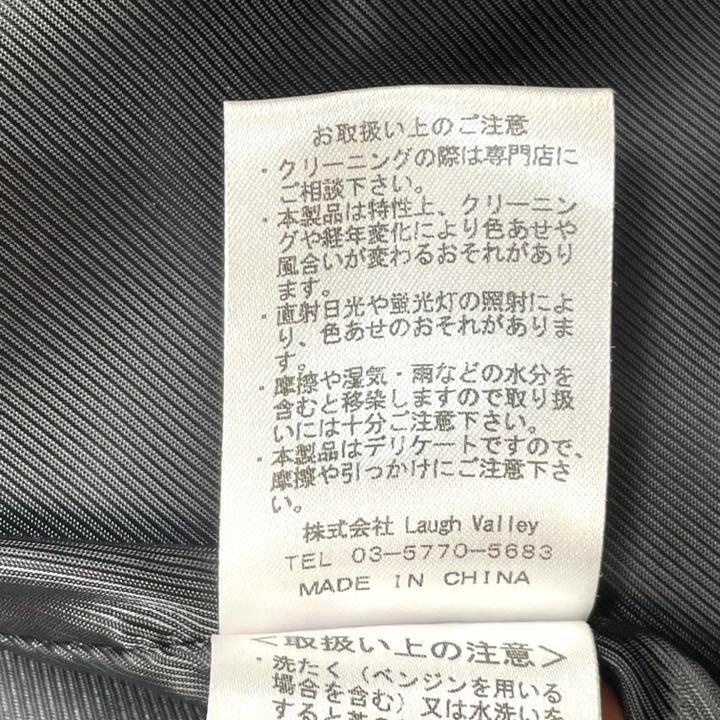 お取扱い上のご注意
・クリーニングの際は専門店に
ご相談下さい。
・本製品は特性上、クリーニン
グや経年変化により色あせや
風合いが変わるおそれがあり
ます。
・直射日光や蛍光灯の照射によ
り、色あせのおそれがありま
す。
・摩擦や湿気・雨などの水分を
含むと移染しますので取り扱
いには十分ご注意下さい。
・本製品はデリケートですので、
摩擦や引っかけにご注意下さ
い。
株式会社 Laugh Valley
TEL 03-5770-5683
MADE IN CHINA
＜取扱い上の注意＞
・洗たく（ベンジンを用いる
場合を含む）又は水洗いを
すると